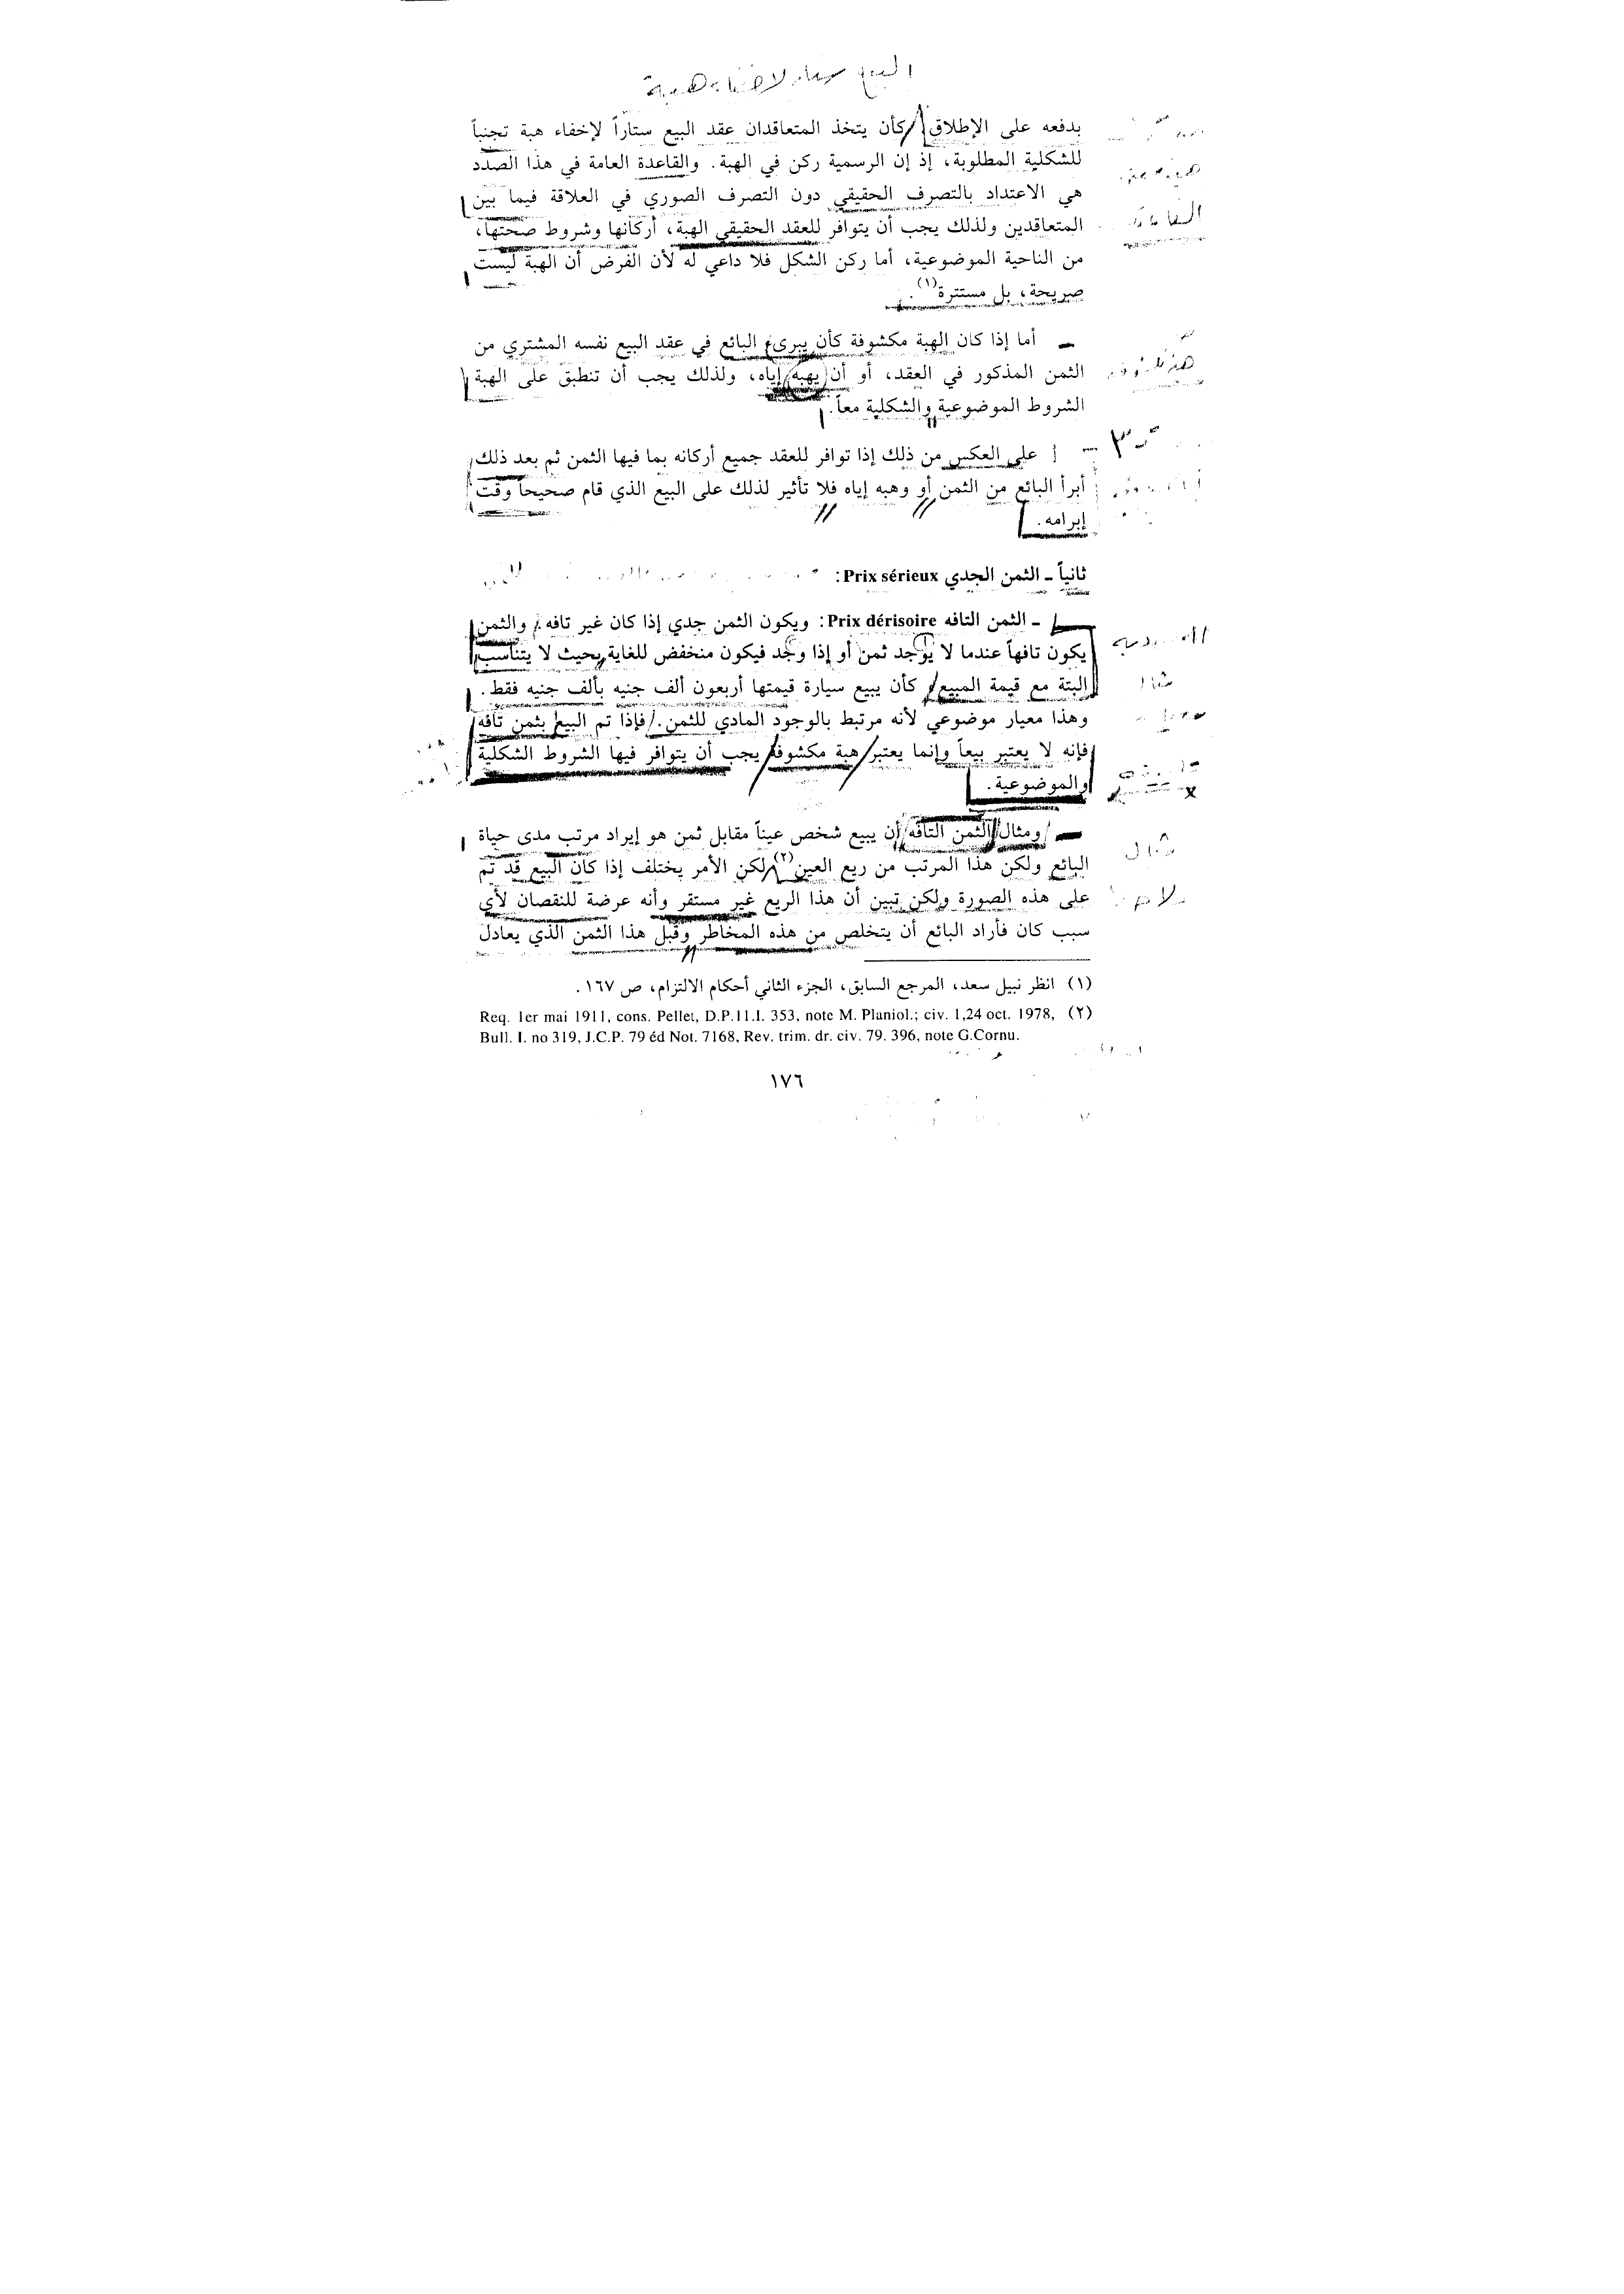 البيع ستار لإخفاء هبة
بدفعه على الإطلاق كأن يتخذ المتعاقدان عقد البيع ستاراً لإخفاء هبة تجنباً
للشكلية المطلوبة، إذ إن الرسمية ركن في الهبة. والقاعدة العامة في هذا الصدد
هي الاعتداد بالتصرف الحقيقي دون التصرف الصوري في العلاقة فيما بين
المتعاقدين ولذلك يجب أن يتوافر للعقد الحقيقي الهبة، أركانها وشروط صحتها،
من الناحية الموضوعية، أما ركن الشكل فلا داعي له لأن الفرض أن الهبة ليست
صريحة، بل مستترة(١).
أما إذا كان الهبة مكشوفة كأن يبرىء البائع في عقد البيع نفسه المشتري من
الثمن المذكور في العقد، أو أن يهبه إياه، ولذلك يجب أن تنطبق على الهبة
الشروط الموضوعية والشكلية معاً.
على العكس من ذلك إذا توافر للعقد جميع أركانه بما فيها الثمن ثم بعد ذلك
أبرأ البائع من الثمن أو وهبه إياه فلا تأثير لذلك على البيع الذي قام صحيحاً وقت
إبرامه.
ثانياً ـ الثمن الجدي Prix sérieux:
ـ الثمن التافه Prix dérisoire: ويكون الثمن جدي إذا كان غير تافه. والثمن
يكون تافهاً عندما لا يوجد ثمن أو إذا وجد فيكون منخفض للغاية بحيث لا يتناسب
البتة مع قيمة المبيع كأن يبيع سيارة قيمتها أربعون ألف جنيه بألف جنيه فقط.
وهذا معيار موضوعي لأنه مرتبط بالوجود المادي للثمن. فإذا تم البيع بثمن تافه
فإنه لا يعتبر بيعاً وإنما يعتبر هبة مكشوفة يجب أن يتوافر فيها الشروط الشكلية
والموضوعية.
ومثال الثمن التافه أن يبيع شخص عيناً مقابل ثمن هو إيراد مرتب مدى حياة
البائع ولكن هذا المرتب من ريع العين(٢) ولكن الأمر يختلف إذا كان البيع قد تم
على هذه الصورة ولكن تبين أن هذا الريع غير مستقر وأنه عرضة للنقصان لأي
سبب كان فأراد البائع أن يتخلص من هذه المخاطر وقبل هذا الثمن الذي يعادل
(١) انظر نبيل سعد، المرجع السابق، الجزء الثاني أحكام الالتزام، ص ١٦٧.
(٢) Req. 1er mai 1911, cons. Pellet, D.P.11.I. 353, note M. Planiol.; civ. 1,24 oct. 1978,
Bull. I. no 319, J.C.P. 79 éd Not. 7168, Rev. trim. dr. civ. 79. 396, note G.Cornu.
١٧٦